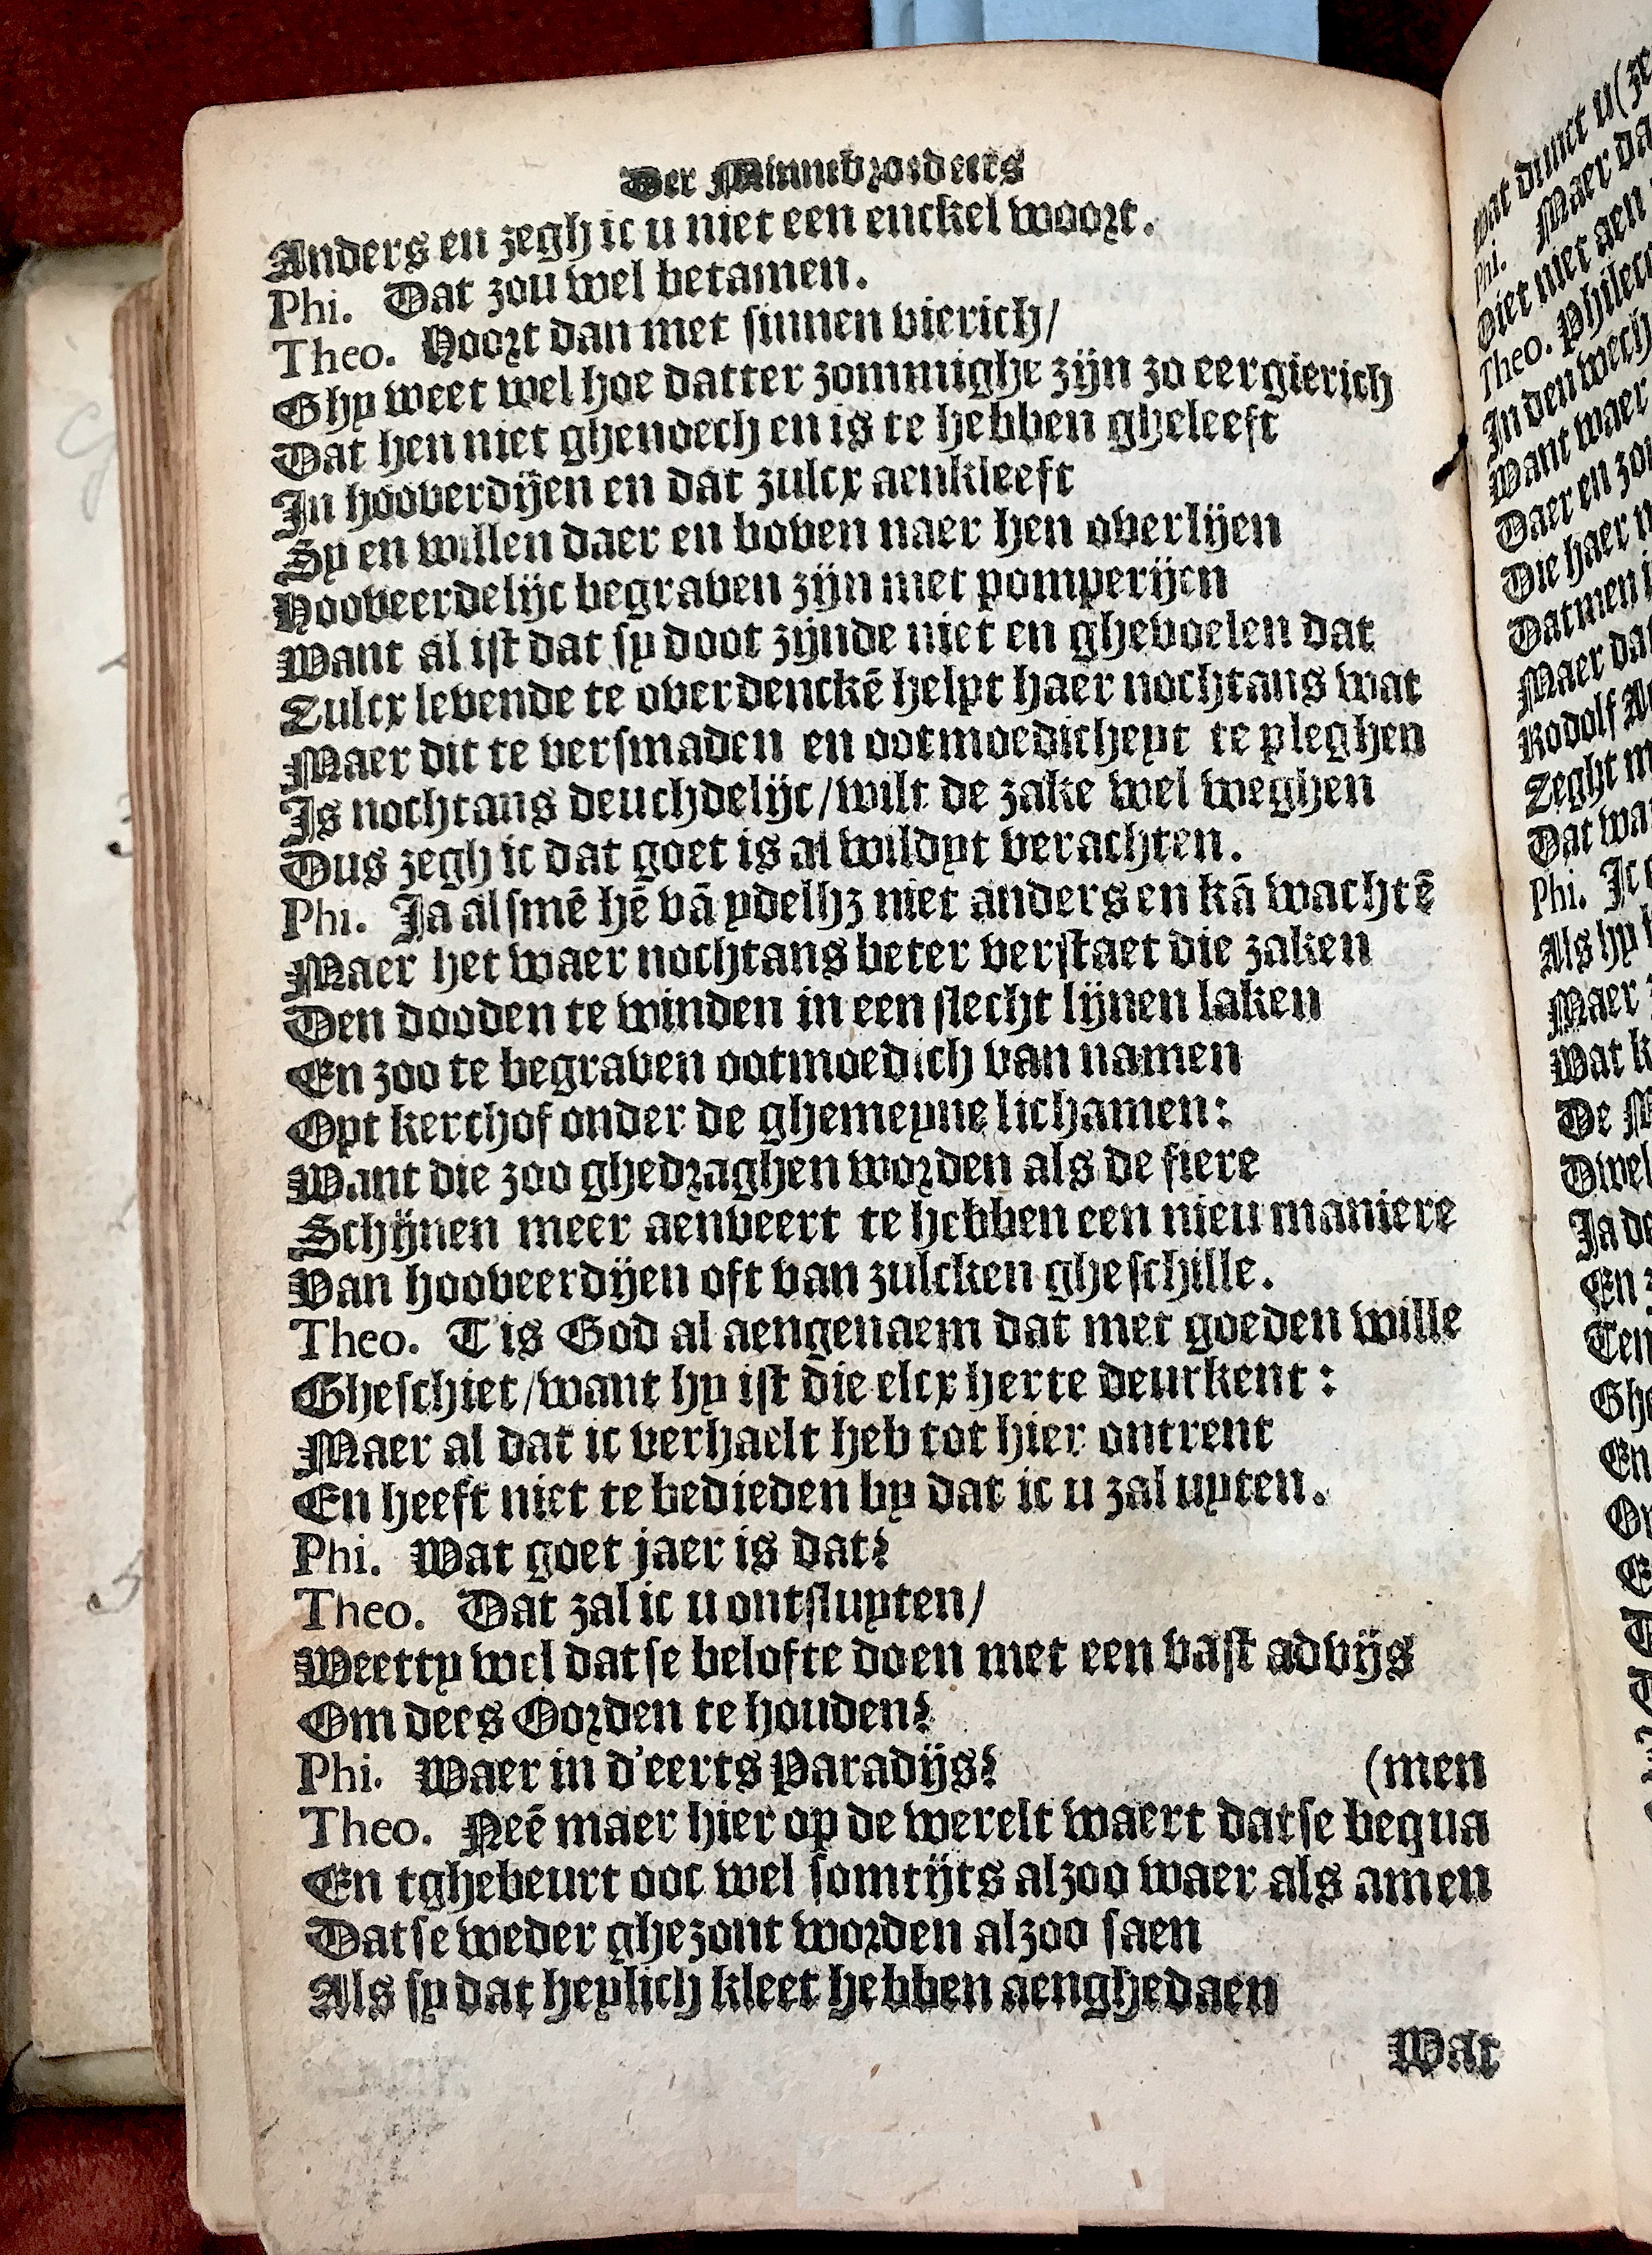 Der Minnebroeders
Anders en zegh ic u niet een enckel woort.
Phi. Dat zou wel betamen.
Theo. Hoort dan met sinnen vierich/
Ghy weet wel hoe datter zommighe zijn zo eergierich
Dat hen niet ghenoech en is te hebben gheleeft
In hooverdijen en dat zulcx aenkleeft
Sy en willen daer en boven naer hen overlijen
Hooveerdelijc begraven zijn met pomperijen
Want al ist dat sy doot zijnde niet en ghevoelen dat
Zulcx levende te overdenckē helpt haer nochtans wat
Maer dit te versmaden en ootmoedicheyt te pleghen
Is nochtans deuchdelijc/wilt de zake wel weghen
Dus zegh ic dat goet is al wildyt verachten.
Phi. Ja alsmē hē vā ydelhz niet anders en kā wachtē
Maer het waer nochtans beter verstaet die zaken
Den dooden te winden in een slecht lijnen laken
En zoo te begraven ootmoedich van namen
Opt kerchof onder de ghemeyne lichamen:
Want die zoo ghedraghen worden als de fiere
Schijnen meer aenveert te hebben een nieu maniere
Van hooveerdijen oft van zulcken gheschille.
Theo. T'is God al aengenaem dat met goeden wille
Gheschiet/want hy ist die elcx herte deurkent:
Maer al dat ic verhaelt heb tot hier ontrent
En heeft niet te bedieden by dat ic u zal uyten.
Phi. Wat goet jaer is dat?
Theo. Dat zal ic u ontsluyten/
Weetty wel datse belofte doen met een vast advijs
Om deés Oorden te houden?
Phi. Waer in d'eerts Paradijs? (men
Theo. Neē maer hier op de werelt waert datse bequa
En tghebeurt ooc wel somtijts alzoo waer als amen
Datse weder ghezont worden alzoo saen
Als sy dat heylich kleet hebben aenghedaen
Wat
wat dunct u
Phi. Maer
Theo.
In den wech
Want waer
Daer en
Die haer
Datmen
Maer dat
Rodolf
Zeght
Phi. Ic
Als hy
Maer
Wat
De
Ja
En